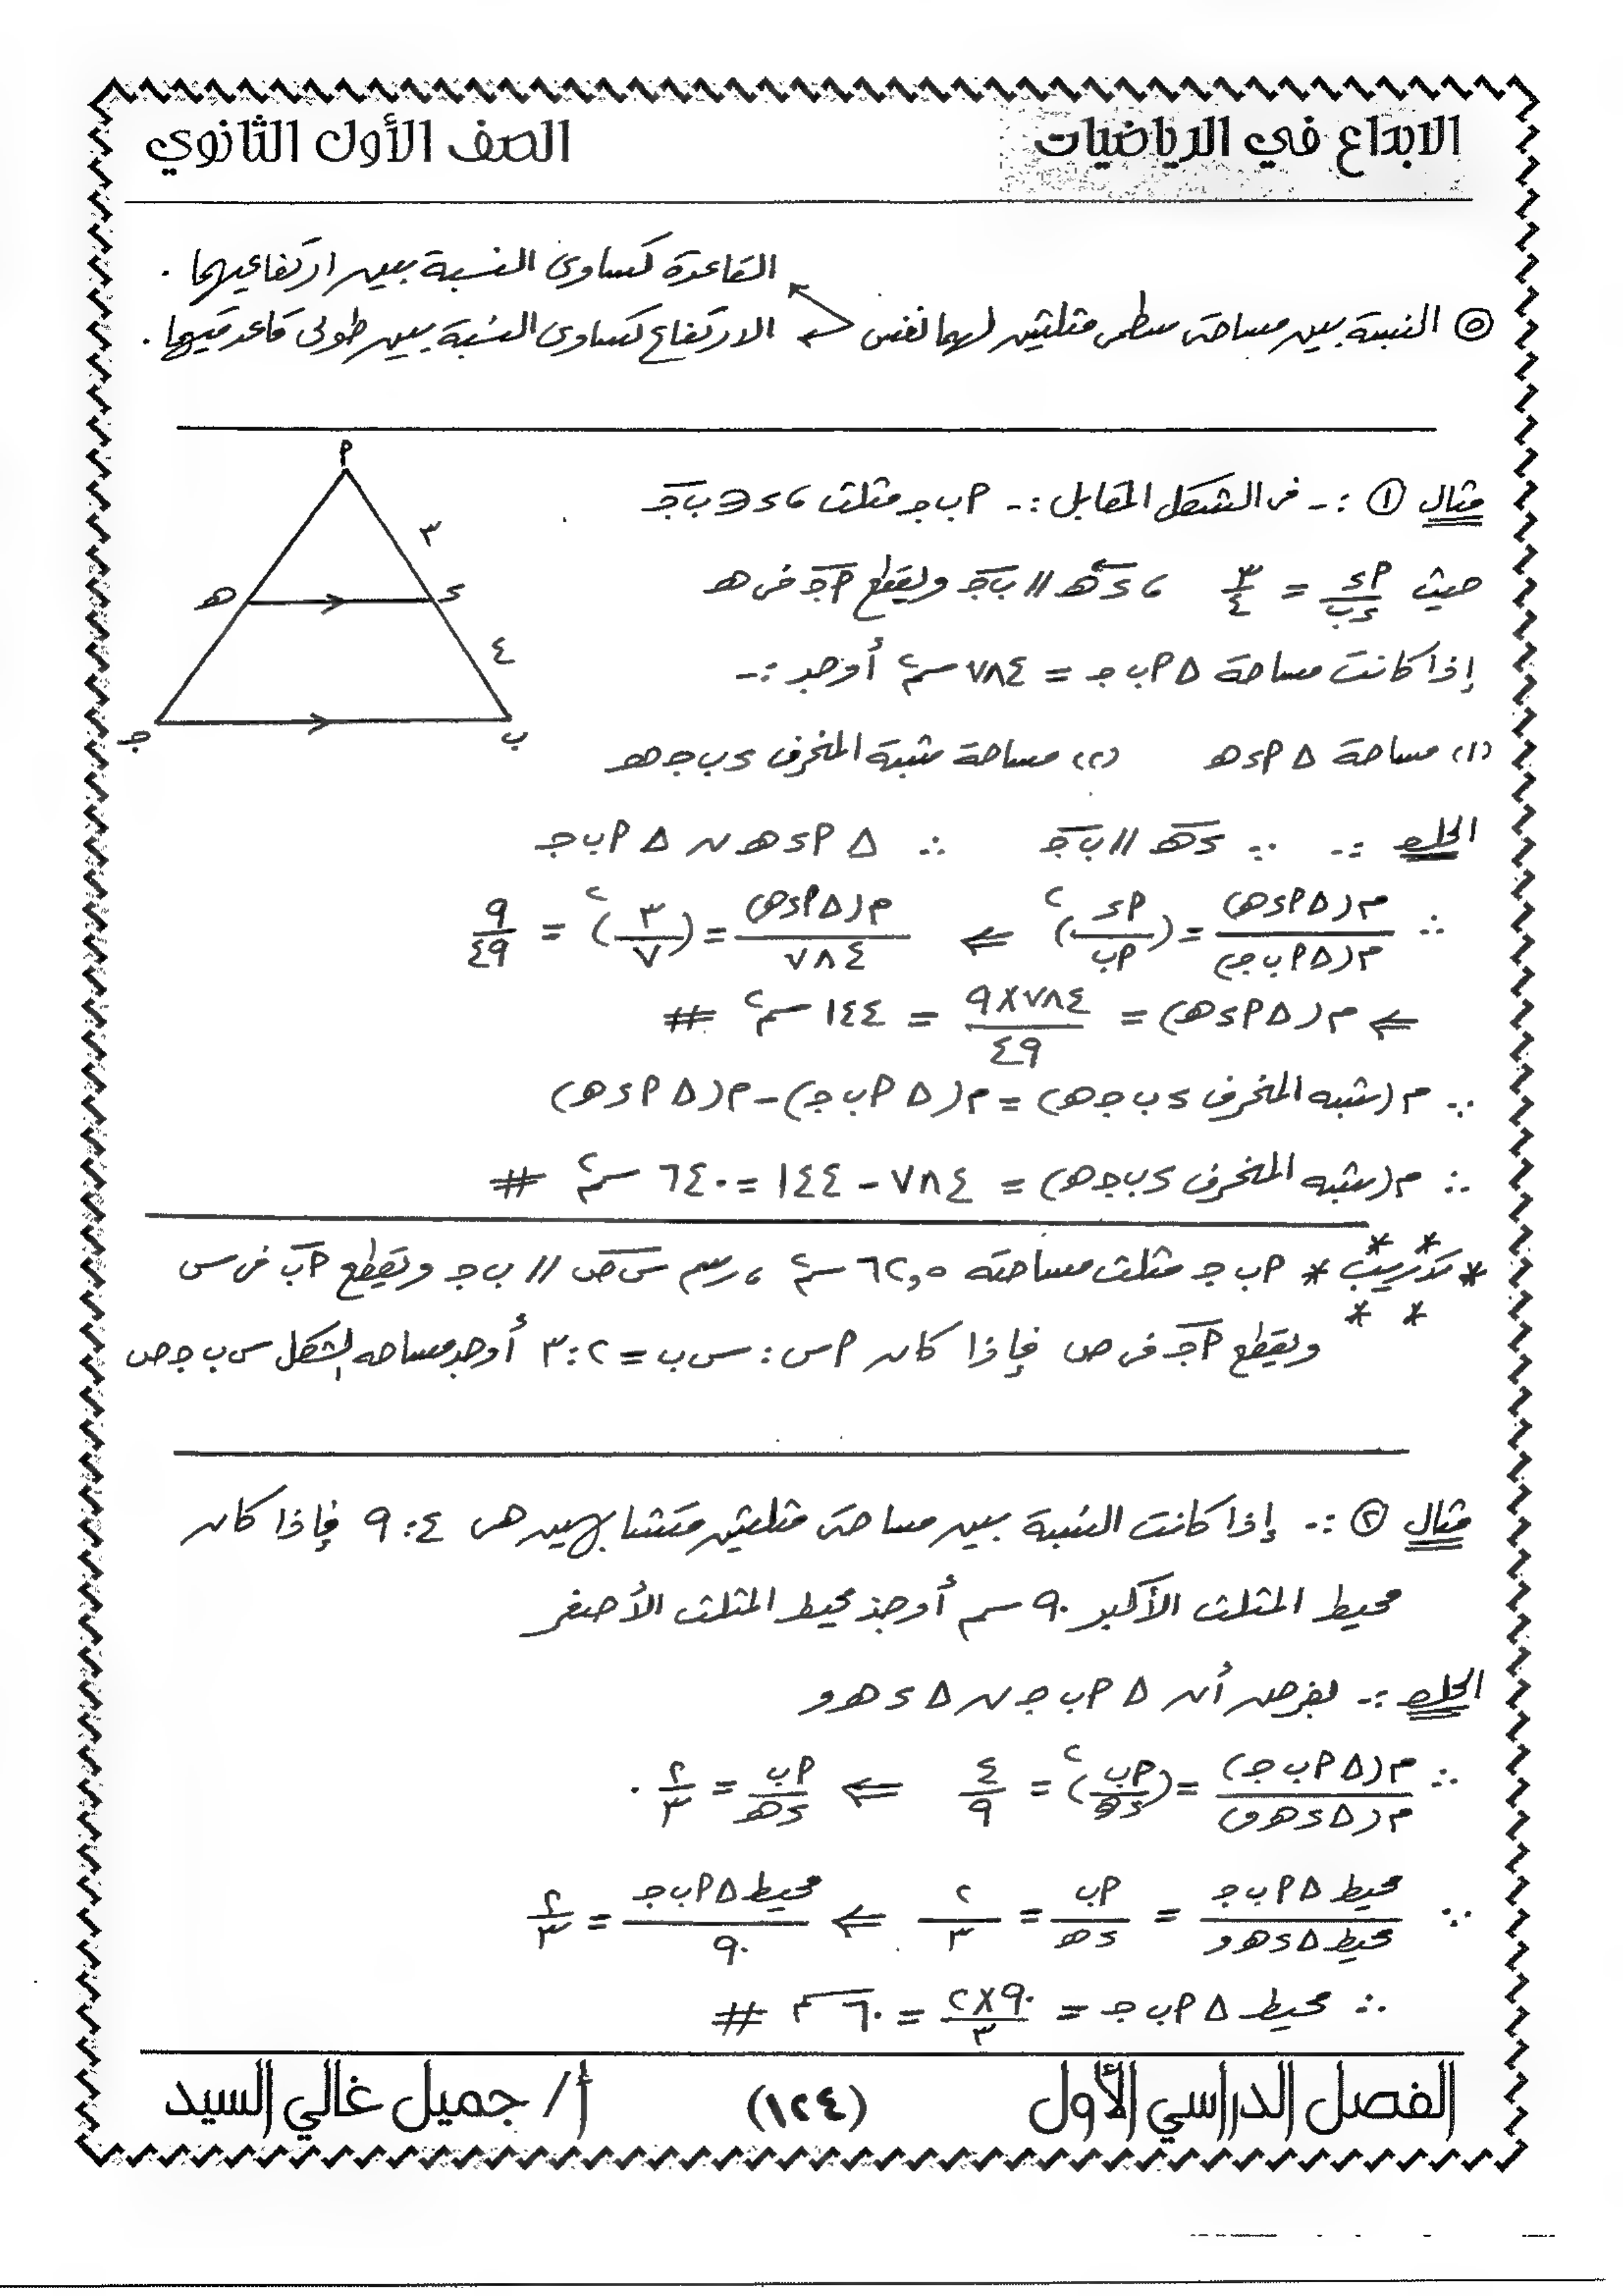 الابداع في الرياضيات
الصف الأول الثانوي
القاعدة تساوى النسبة بين ارتفاعيهما .
⑤ النسبة بين مساحتى سطحى مثلثين لهما نفس
الارتفاع تساوى النسبة بين طولى قاعدتيهما .
مثال ① :- فى الشكل المقابل :- أ ب جـ مثلث ، ء ∈ ب جـ
حيث أء / ءب = ٣ / ٤ ، ء هـ // ب جـ ويقطع أ جـ فى هـ
إذا كانت مساحة △ أ ب جـ = ٧٨٤ سم٢ أوجد :-
(١) مساحة △ أ ء هـ (٢) مساحة شبة المنحرف ء ب جـ هـ
أ
٣
هـ
ء
٤
جـ
ب
الحل :- ∵ ء هـ // ب جـ ∴ △ أ ء هـ ~ △ أ ب جـ
∴ م(△ أ ء هـ) / م(△ أ ب جـ) = (أء / أب)٢ ⇐ م(△ أ ء هـ) / ٧٨٤ = (٣ / ٧)٢ = ٩ / ٤٩
⇐ م(△ أ ء هـ) = ٧٨٤ × ٩ / ٤٩ = ١٤٤ سم٢ #
∵ م(شبه المنحرف ء ب جـ هـ) = م(△ أ ب جـ) - م(△ أ ء هـ)
∴ م(شبه المنحرف ء ب جـ هـ) = ٧٨٤ - ١٤٤ = ٦٤٠ سم٢ #
* تدريب * أ ب جـ مثلث مساحته ٦٢,٥ سم٢ ، رسم س ص // ب جـ ويقطع أ ب فى س
ويقطع أ جـ فى ص فإذا كان أ س : س ب = ٢ : ٣ أوجد مساحه الشكل س ب جـ ص
مثال ② :- إذا كانت النسبة بين مساحتى مثلثين متشابهين هى ٤ : ٩ فإذا كان
محيط المثلث الأكبر ٩٠ سم أوجد محيط المثلث الأصغر
الحل :- بفرض أن △ أ ب جـ ~ △ ء هـ و
∴ م(△ أ ب جـ) / م(△ ء هـ و) = (أب / ء هـ)٢ = ٤ / ٩ ⇐ أب / ء هـ = ٢ / ٣ .
∵ محيط △ أ ب جـ / محيط △ ء هـ و = أب / ء هـ = ٢ / ٣ ⇐ محيط △ أ ب جـ / ٩٠ = ٢ / ٣
∴ محيط △ أ ب جـ = ٩٠ × ٢ / ٣ = ٦٠ سم #
الفصل الدراسي الأول
(١٢٤)
أ / جميل غالي السيد